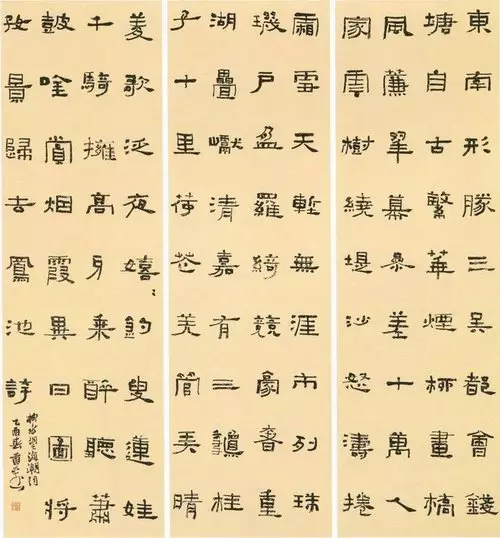 東南形勝三吳都會錢
塘自古繁華煙柳畫橋
風簾翠幕參差十萬人
家雲樹繞堤沙怒濤捲
霜雪天塹無涯市列珠
璣戶盈羅綺競豪奢重
湖疊巘清嘉有三秋桂
子十里荷花羌管弄晴
菱歌泛夜嬉〻釣叟蓮娃
千騎擁高牙乘醉聽蕭
鼓吟賞烟霞異日圖將
好景歸去鳳池誇
柳永望海潮詞
乙酉